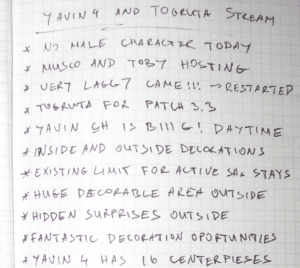 YAVIN 4 AND TOGRUTA STREAM
* NO MALE CHARACTER TODAY
* MUSCO AND TOBY HOSTING
* VERY LAGG7 CAME!!! → RESTARTED
* TOGRUTA FOR PATCH 3.3
* YAVIN SH IS BIIIG! DAYTIME
* INSIDE AND OUTSIDE DECORATIONS
* EXISTING LIMIT FOR ACTIVE SHs STAYS
* HUGE DECORABLE AREA OUTSIDE
* HIDDEN SURPRISES OUTSIDE
* FANTASTIC DECORATION OPORTUNITIES
* YAVIN 4 HAS 16 CENTERPIESES